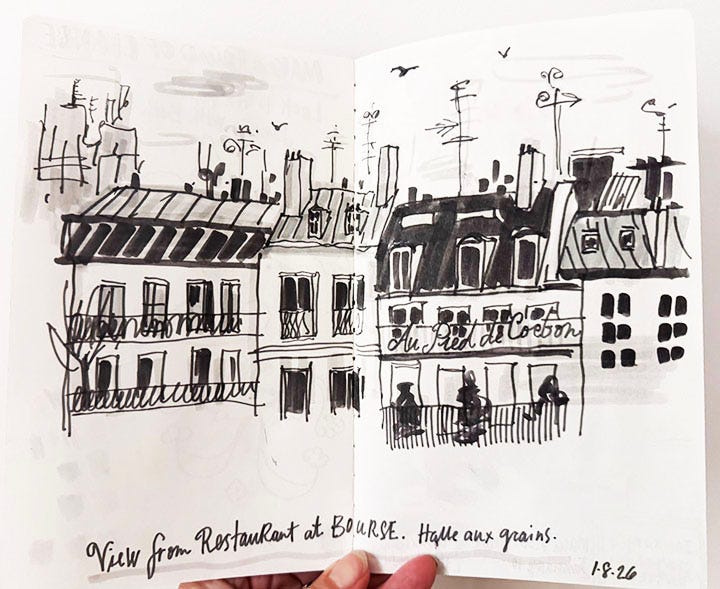 Au Pied de Cochon
View from Restaurant at BOURSE. Halle aux grains.
1.8.26